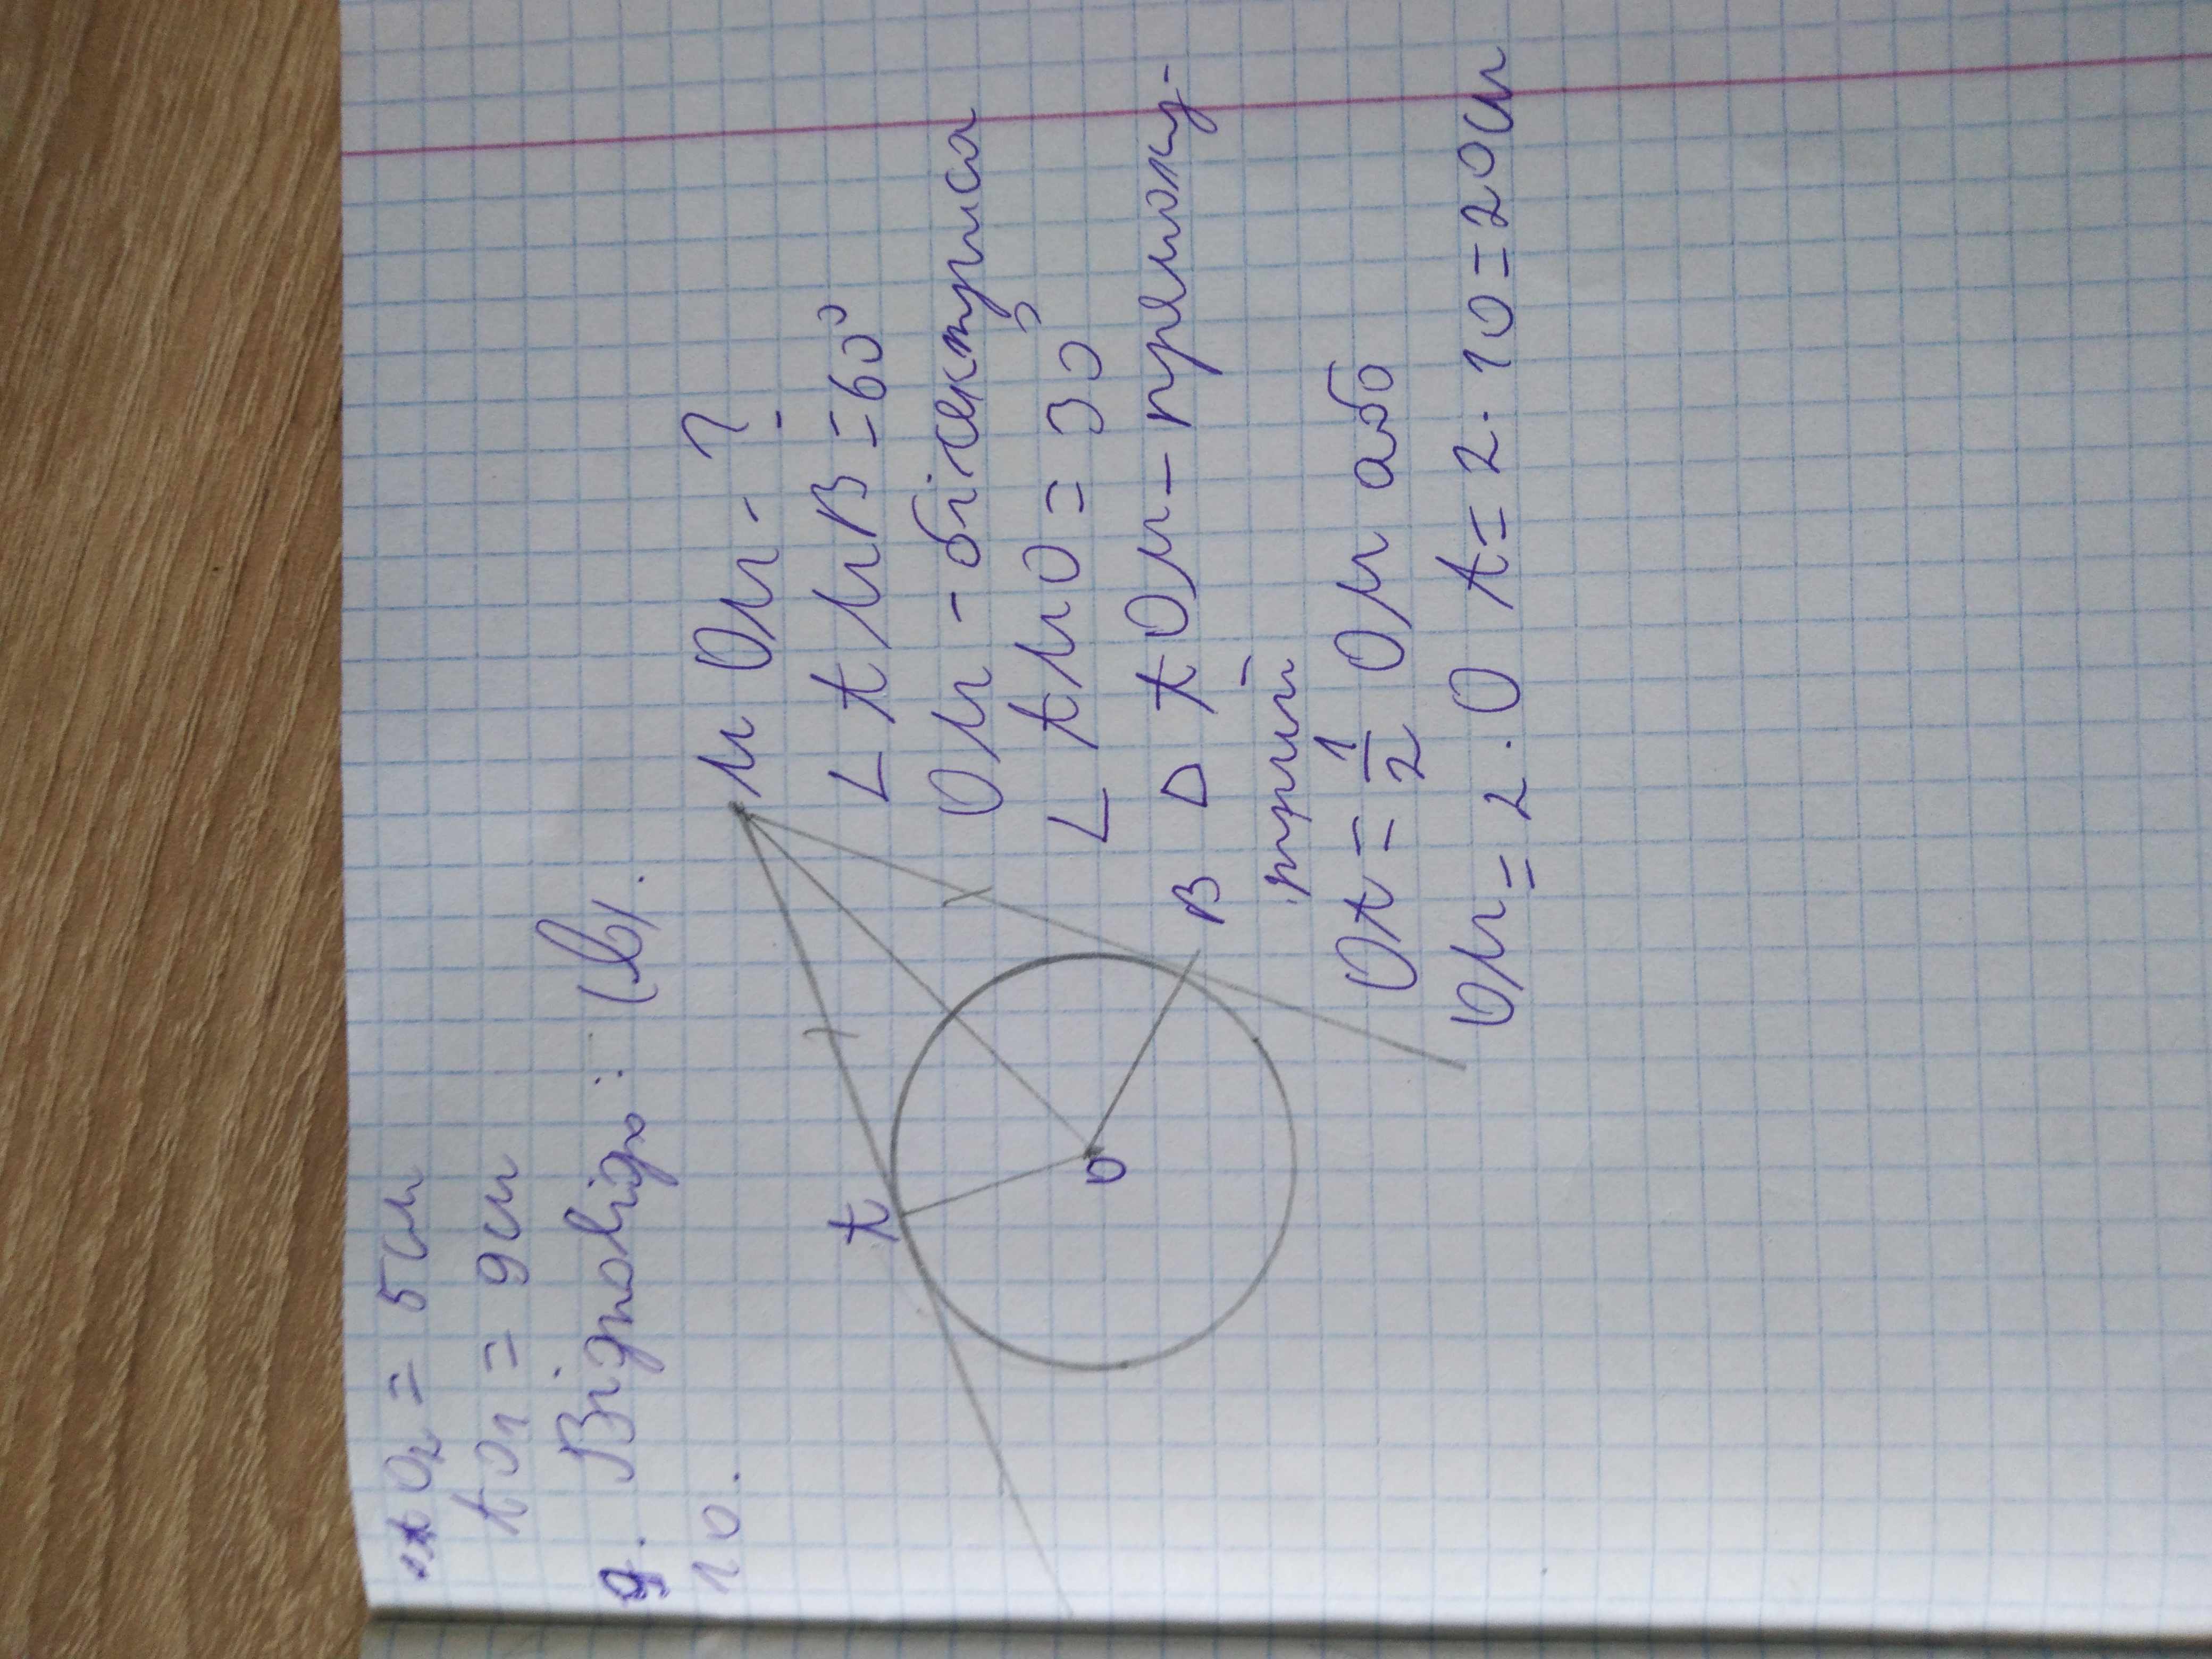 AO₂ = 5см
AO₁ = 9см
9. Відповідь: (в).
10.
M OM - ?
∟ AMB = 60°
OM - бісектриса
∟ AMO = 30°
B Δ AOM - прямоку-
тний
OA = 1/2 OM або
OM = 2 · OA = 2 · 10 = 20см
A
O